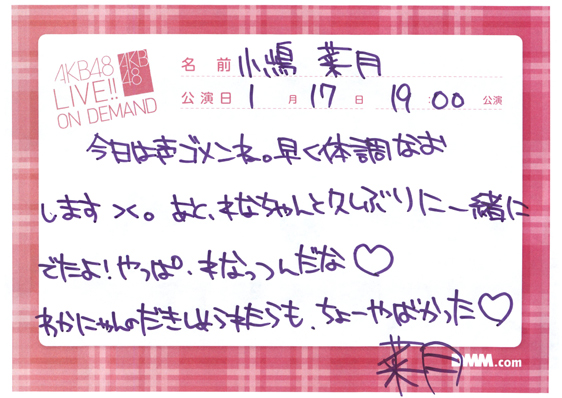 AKB48
LIVE!!
ON DEMAND
AKB
48
名前 小嶋 菜月
公演日 1月 17日 19:00 公演
今日は声ゴメンね。早く体調なお
します><。あと、なちゃんと久しぶりに一緒に
でたよ!やっぱ、なっつんだな♡
わかにゃんのだきしめられたらも、ちょーやばかった♡
菜月
DMM.com